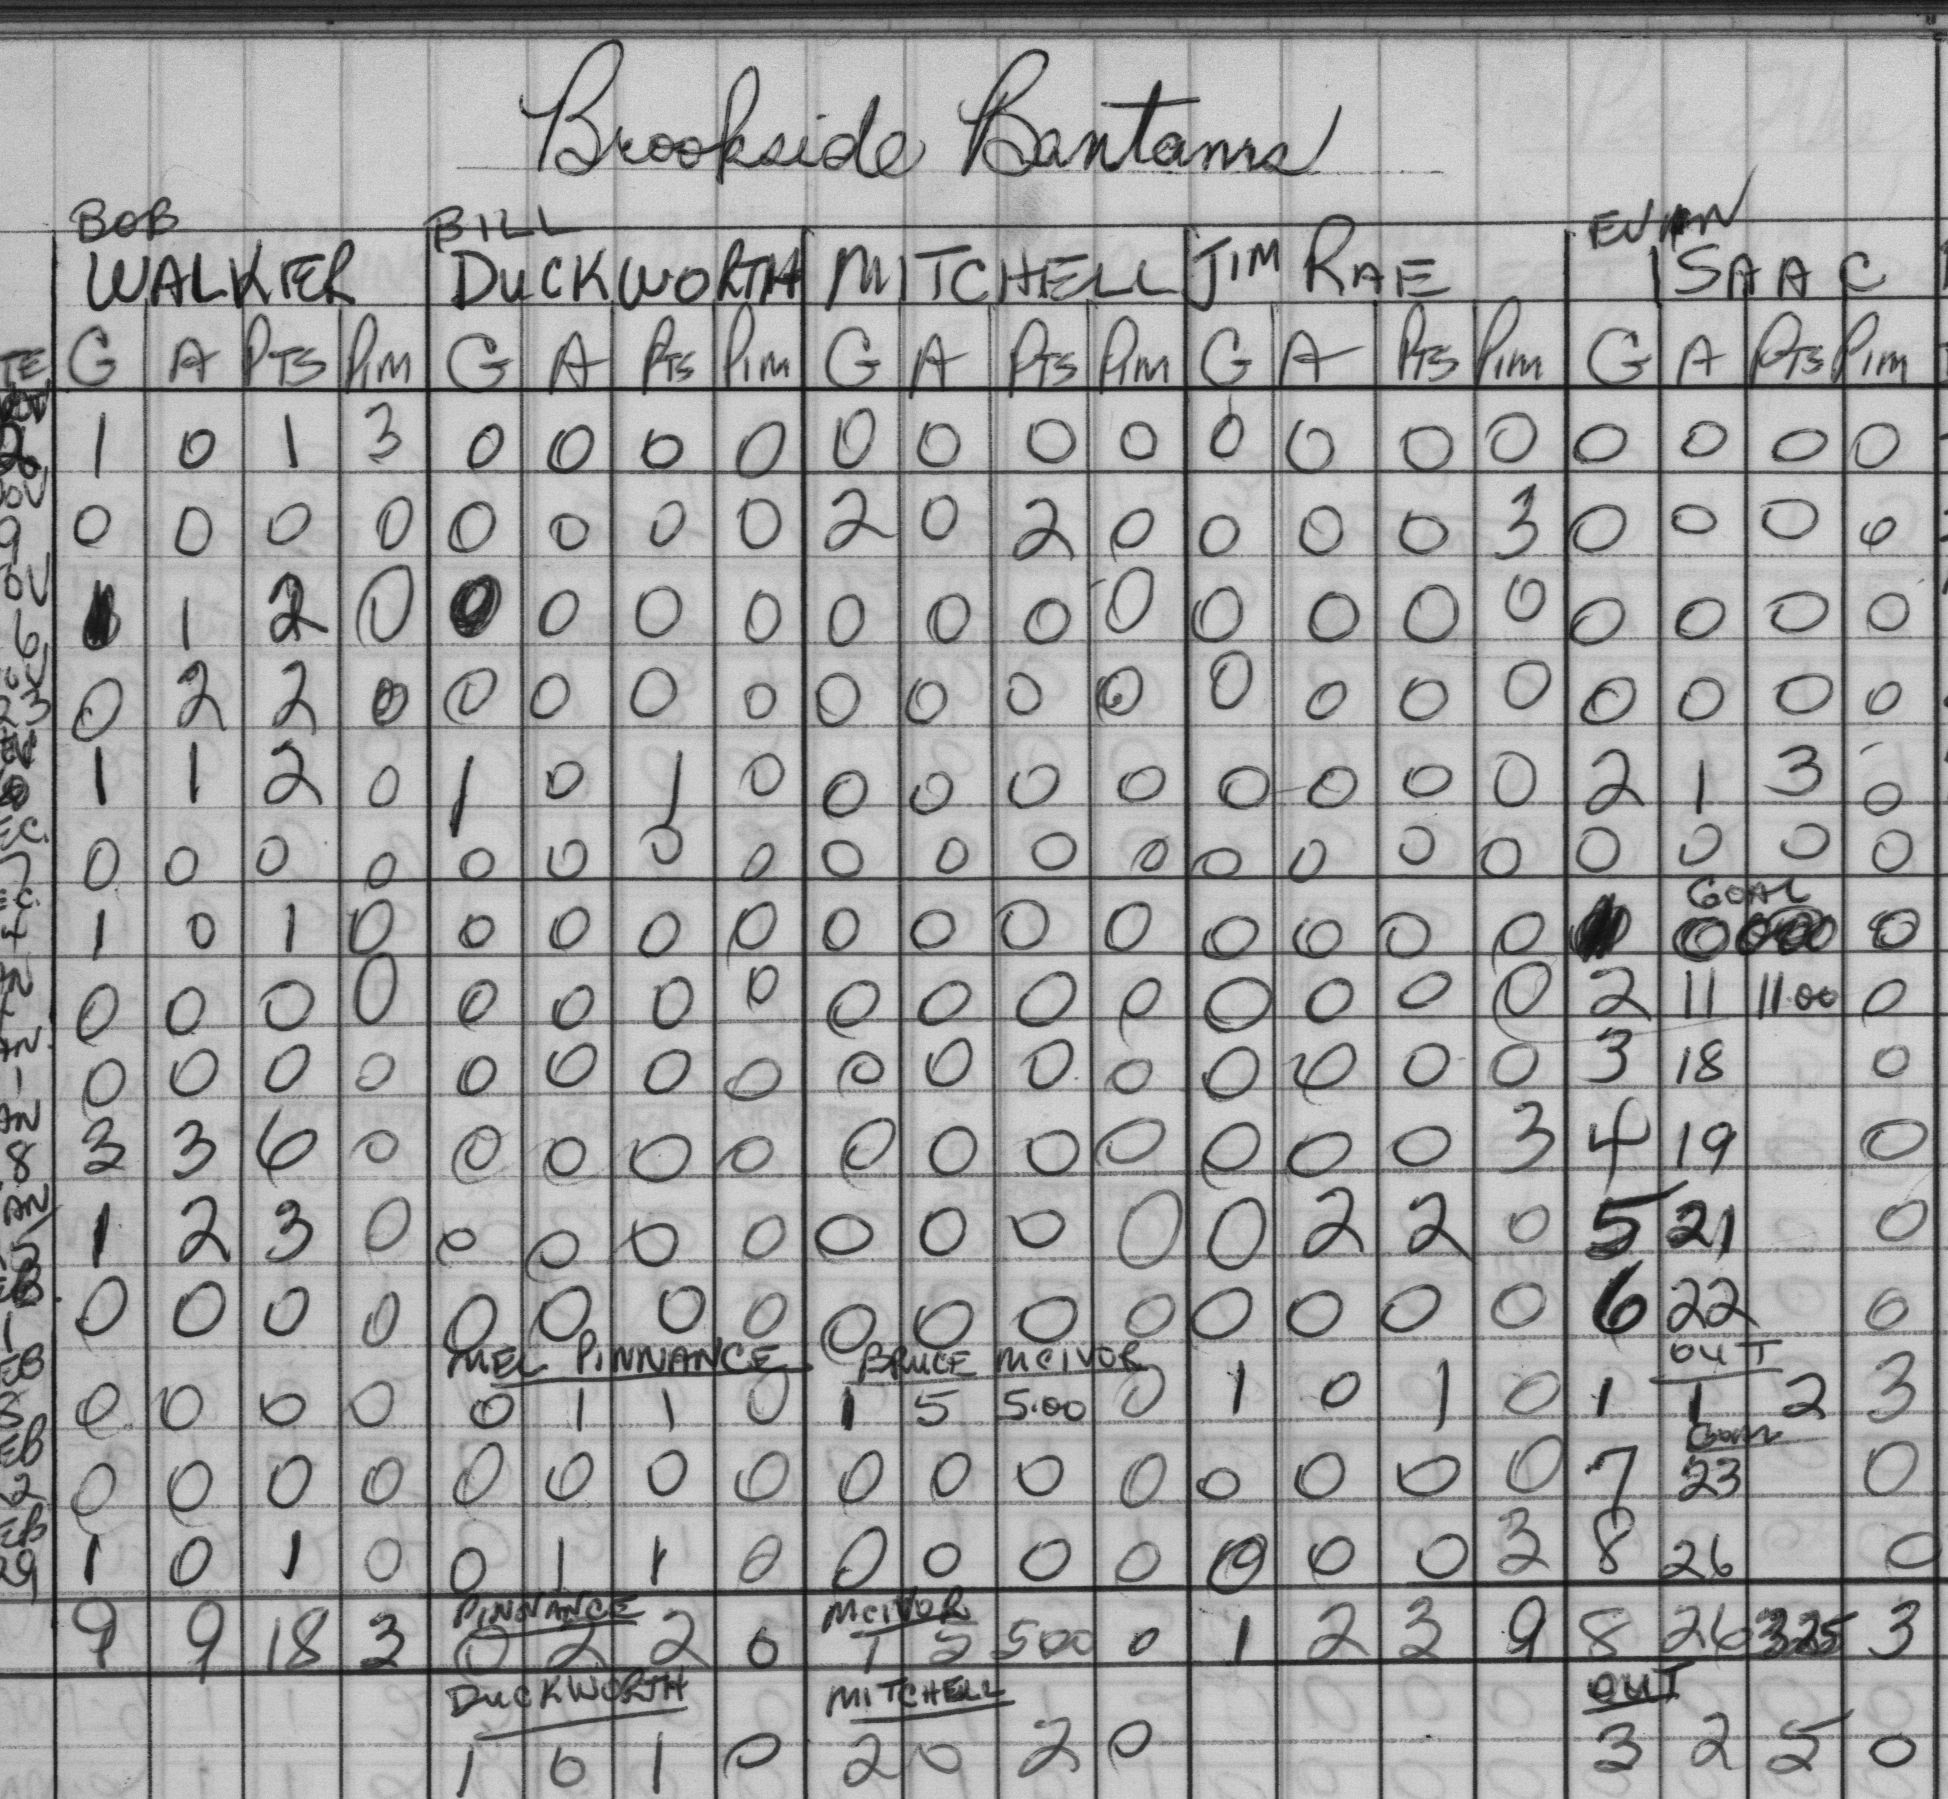 Brookside Bantams
BOB BILL EVAN
WALKER DUCKWORTH MITCHELL JIM RAE ISAAC
TE G A PTS PIM G A PTS PIM G A PTS PIM G A PTS PIM G A PTS PIM
1 0 1 3 0 0 0 0 0 0 0 0 0 0 0 0 0 0 0 0
0 0 0 0 0 0 0 0 2 0 2 0 0 0 0 3 0 0 0 0
1 2 0 0 0 0 0 0 0 0 0 0 0 0 0 0 0 0 0
0 2 2 0 0 0 0 0 0 0 0 0 0 0 0 0 0 0 0 0
1 1 2 0 1 0 1 0 0 0 0 0 0 0 0 0 2 1 3 0
0 0 0 0 0 0 0 0 0 0 0 0 0 0 0 0 0 0 0 0
GOAL
1 0 1 0 0 0 0 0 0 0 0 0 0 0 0 0 0
0 0 0 0 0 0 0 0 0 0 0 0 0 0 0 0 2 11 11.00 0
0 0 0 0 0 0 0 0 0 0 0 0 0 0 0 0 3 18 0
3 3 6 0 0 0 0 0 0 0 0 0 0 0 0 3 4 19 0
1 2 3 0 0 0 0 0 0 0 0 0 0 2 2 0 5 21 0
0 0 0 0 0 0 0 0 0 0 0 0 0 0 0 0 6 22 0
MEL PINNANCE BRUCE MCIVOR OUT
0 0 0 0 0 1 1 0 1 5 5.00 0 1 0 1 0 1 1 2 3
GOAL
0 0 0 0 0 0 0 0 0 0 0 0 0 0 0 0 7 23 0
1 0 1 0 0 1 1 0 0 0 0 0 0 0 0 3 8 26 0
PINNANCE MCIVOR
9 9 18 3 0 2 2 0 1 5 500 0 1 2 3 9 8 26 325 3
DUCKWORTH MITCHELL OUT
1 0 1 0 2 0 2 0 3 2 5 0